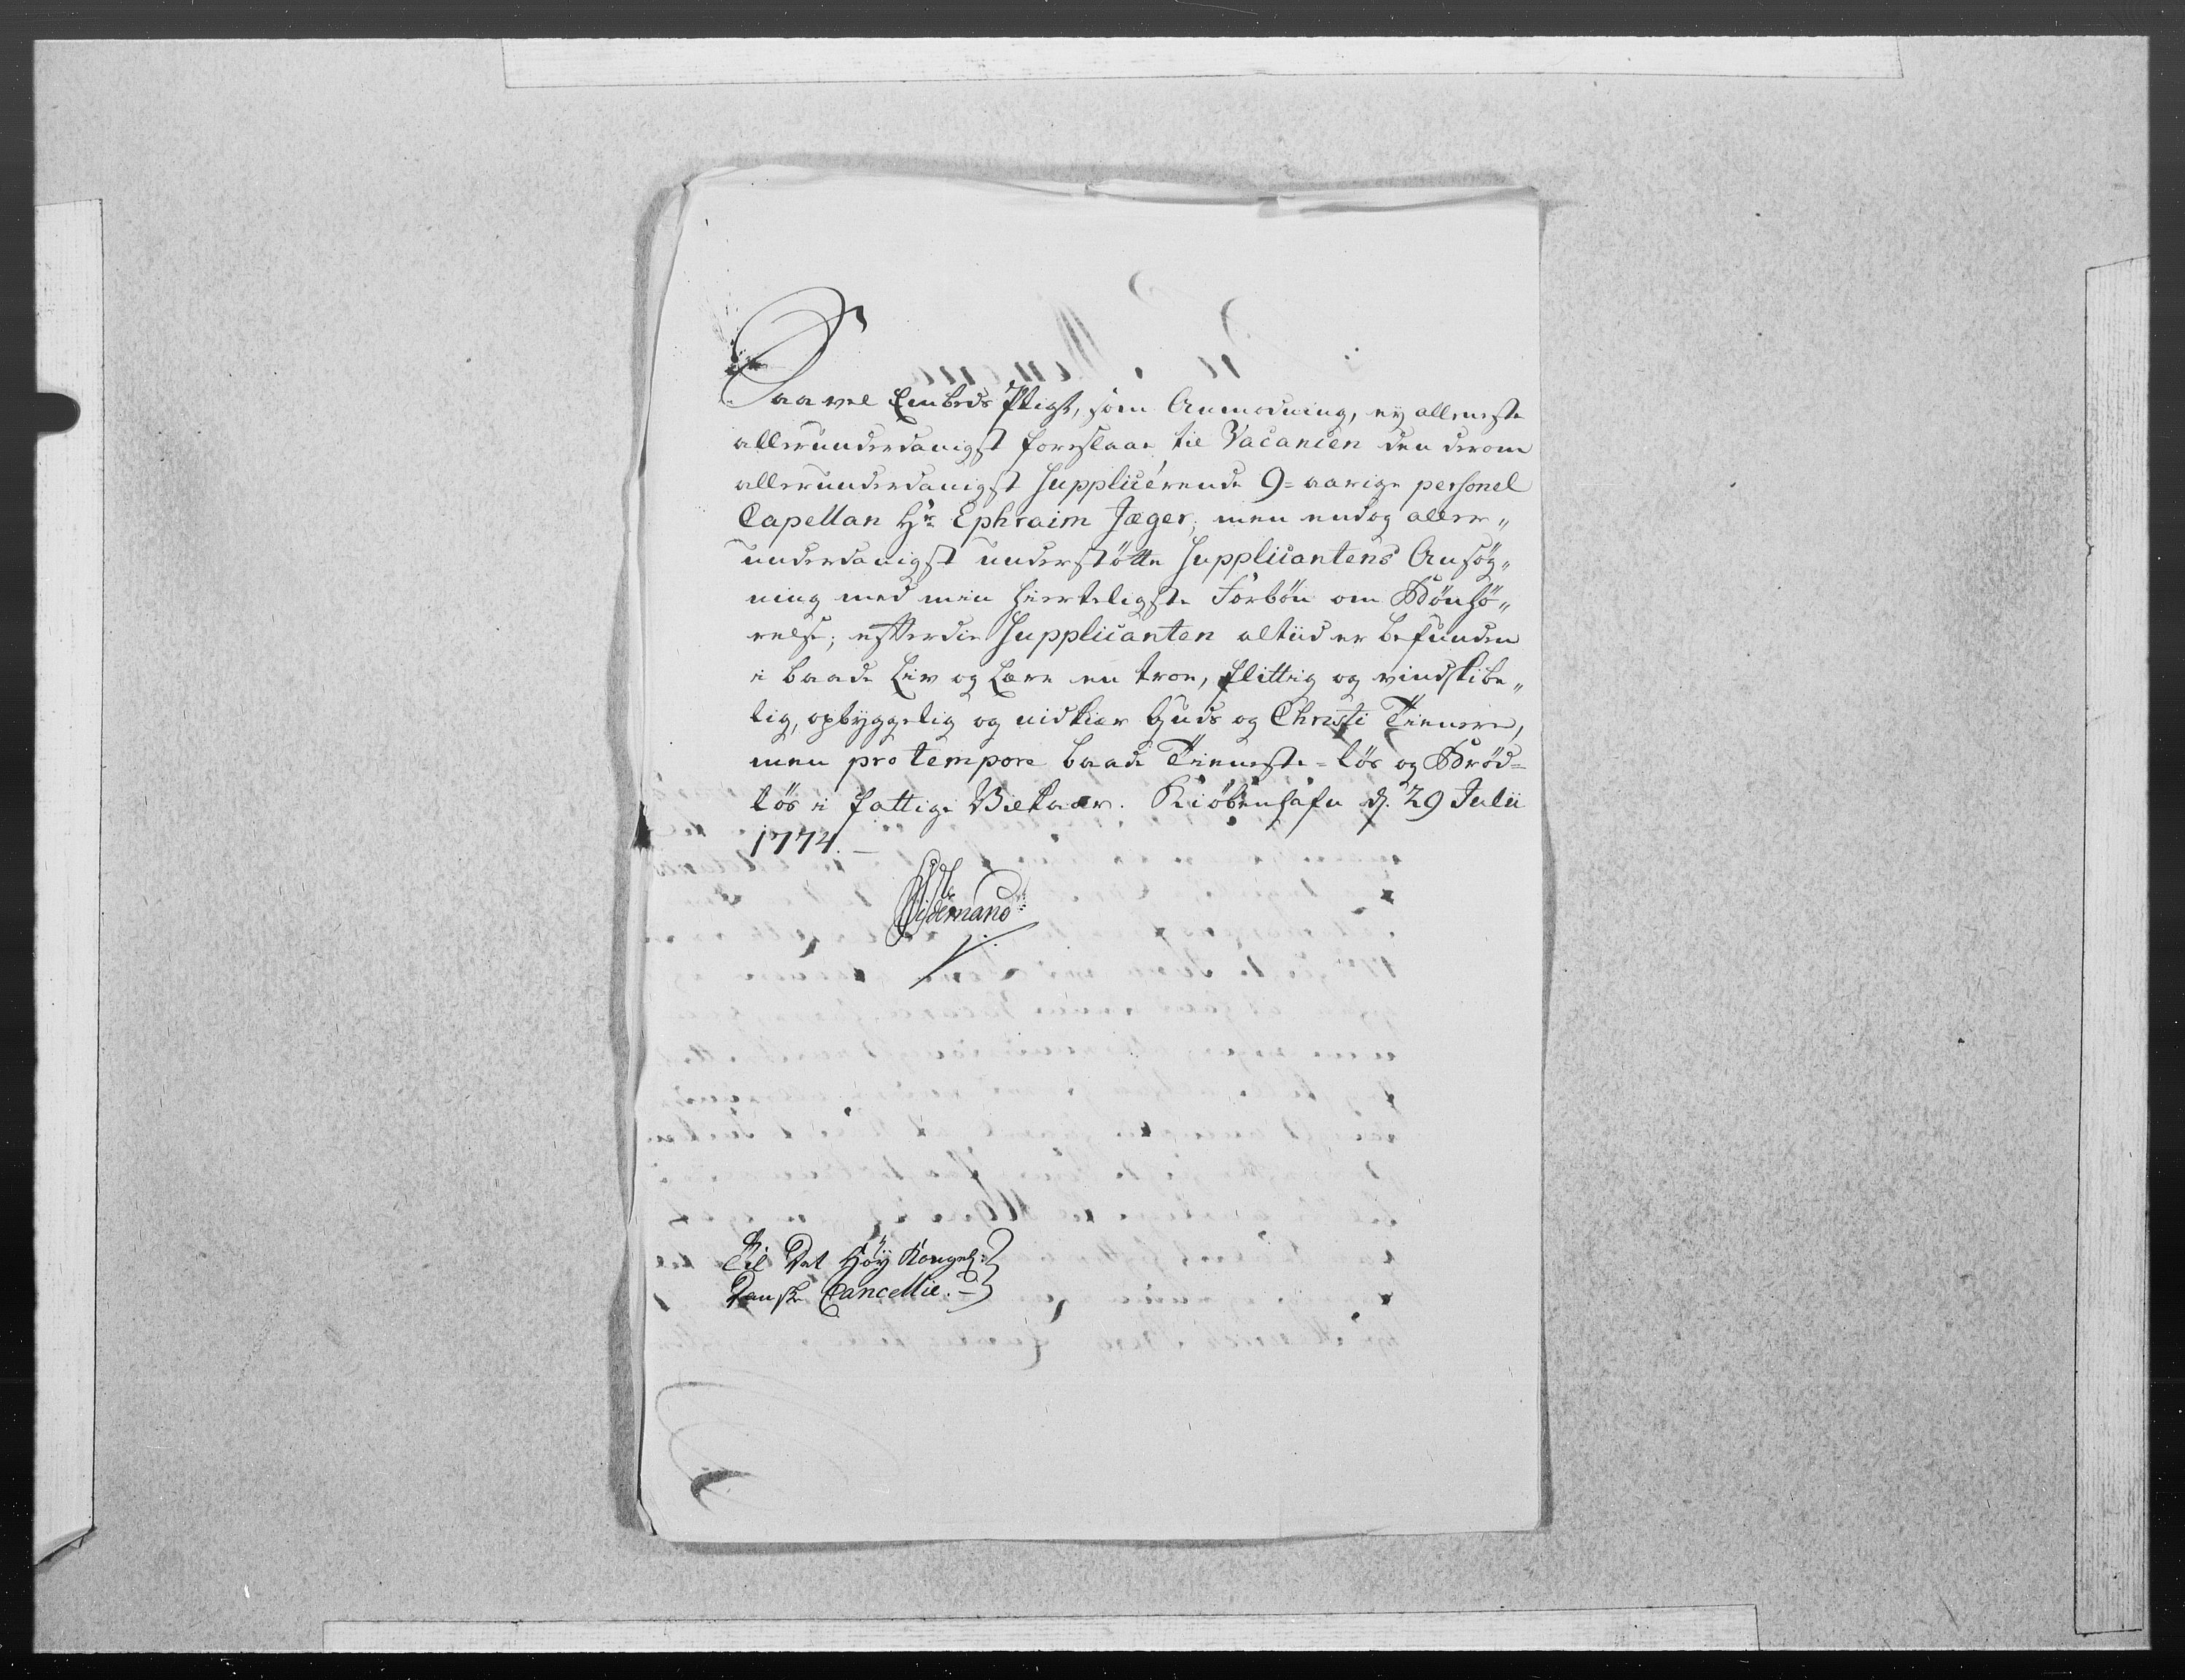 Saavel Embeds Pligt, som Anmodning, ey alleneste
allerunderdanigst foreslaae til Vacancen den derom
allerunderdanigst Supplicérende 9=aarige personel
Capellan Hr. Ephraim Jæger; men endog aller„
underdanigst understøtte Supplicantens Ansøg„
ning med min hierteligste Forbøn om Bønhø„
relse; efterdie Supplicanten altiid er befunden
i baade Liv og Lære en troe, flittig og vindskibe„
lig, opbyggelig og nidkier Guds og Christi Tienere,
men pro tempore baade Tieneste=løs og Brød=
løs i fattige Vilkaar. Kiøbenhafn d. 29 Julii
1774. –
Til Det Høy Kongel:
Danske Cancellie. –